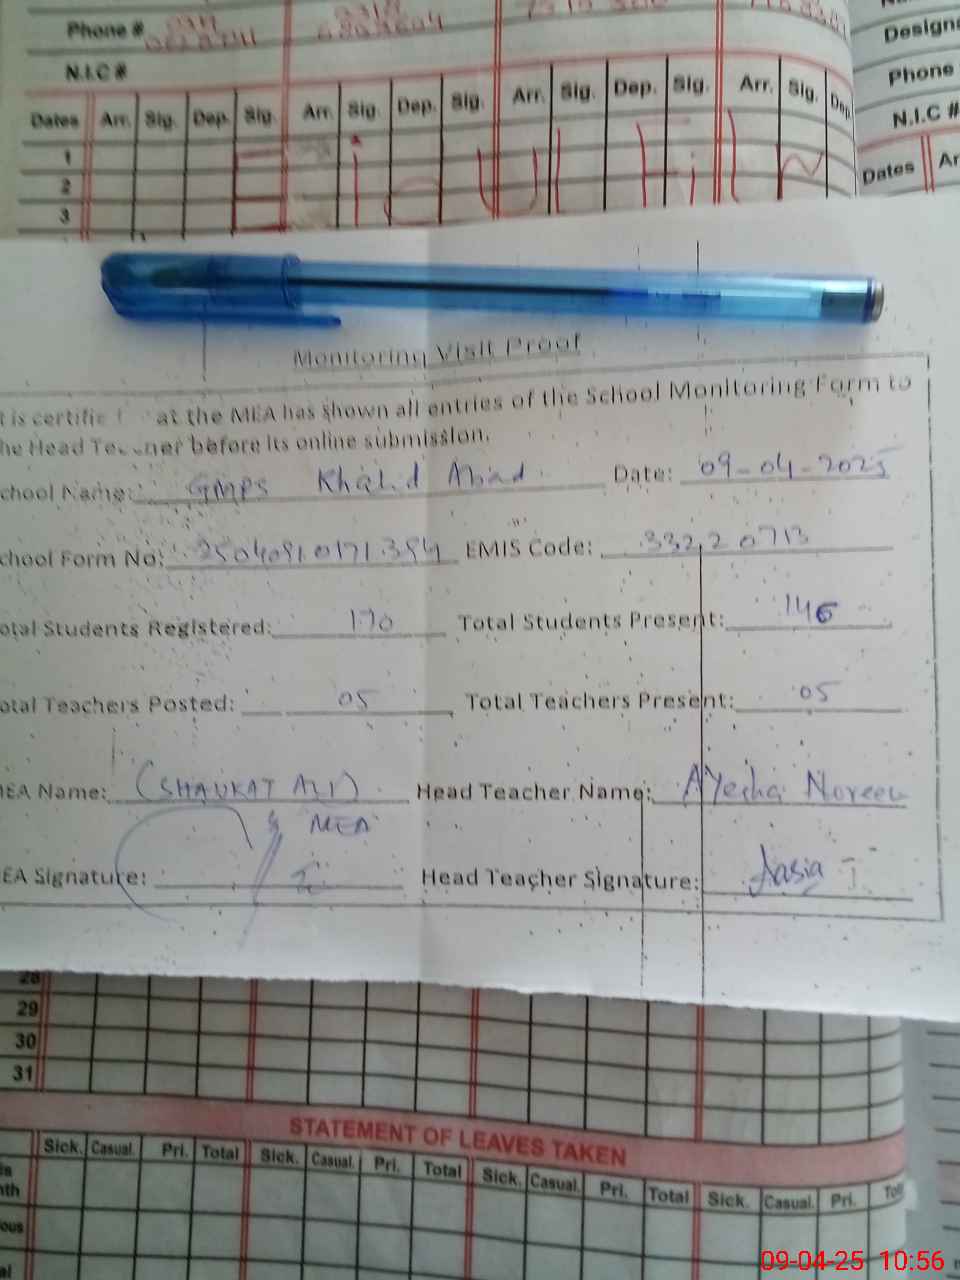 Phone #
N.I.C #
Dates Arr. Sig. Dep. Sig. Arr. Sig. Dep. Sig. Arr. Sig. Dep. Sig. Arr. Sig. Dep.
1
2
3
Designa
Phone
N.I.C #
Dates Ar
Monitoring Visit Proof
t is certifie at the MEA has shown all entries of the School Monitoring Form to
he Head Teacher before its online submission.
chool Name: GMPS Khalid Abad Date: 09-04-2025
chool Form No: EMIS Code: 33220713
otal Students Registered: 170 Total Students Present: 146
otal Teachers Posted: 05 Total Teachers Present: 05
MEA Name: (SHAUKAT ALI) Head Teacher Name: Ayesha Noreen
MEA
EA Signature: Head Teacher Signature: Aasia
28
29
30
31
STATEMENT OF LEAVES TAKEN
Sick. Casual. Pri. Total Sick. Casual. Pri. Total Sick. Casual. Pri. Total Sick. Casual. Pri. Tot
is
nth
ous
al
09-04-25 10:56